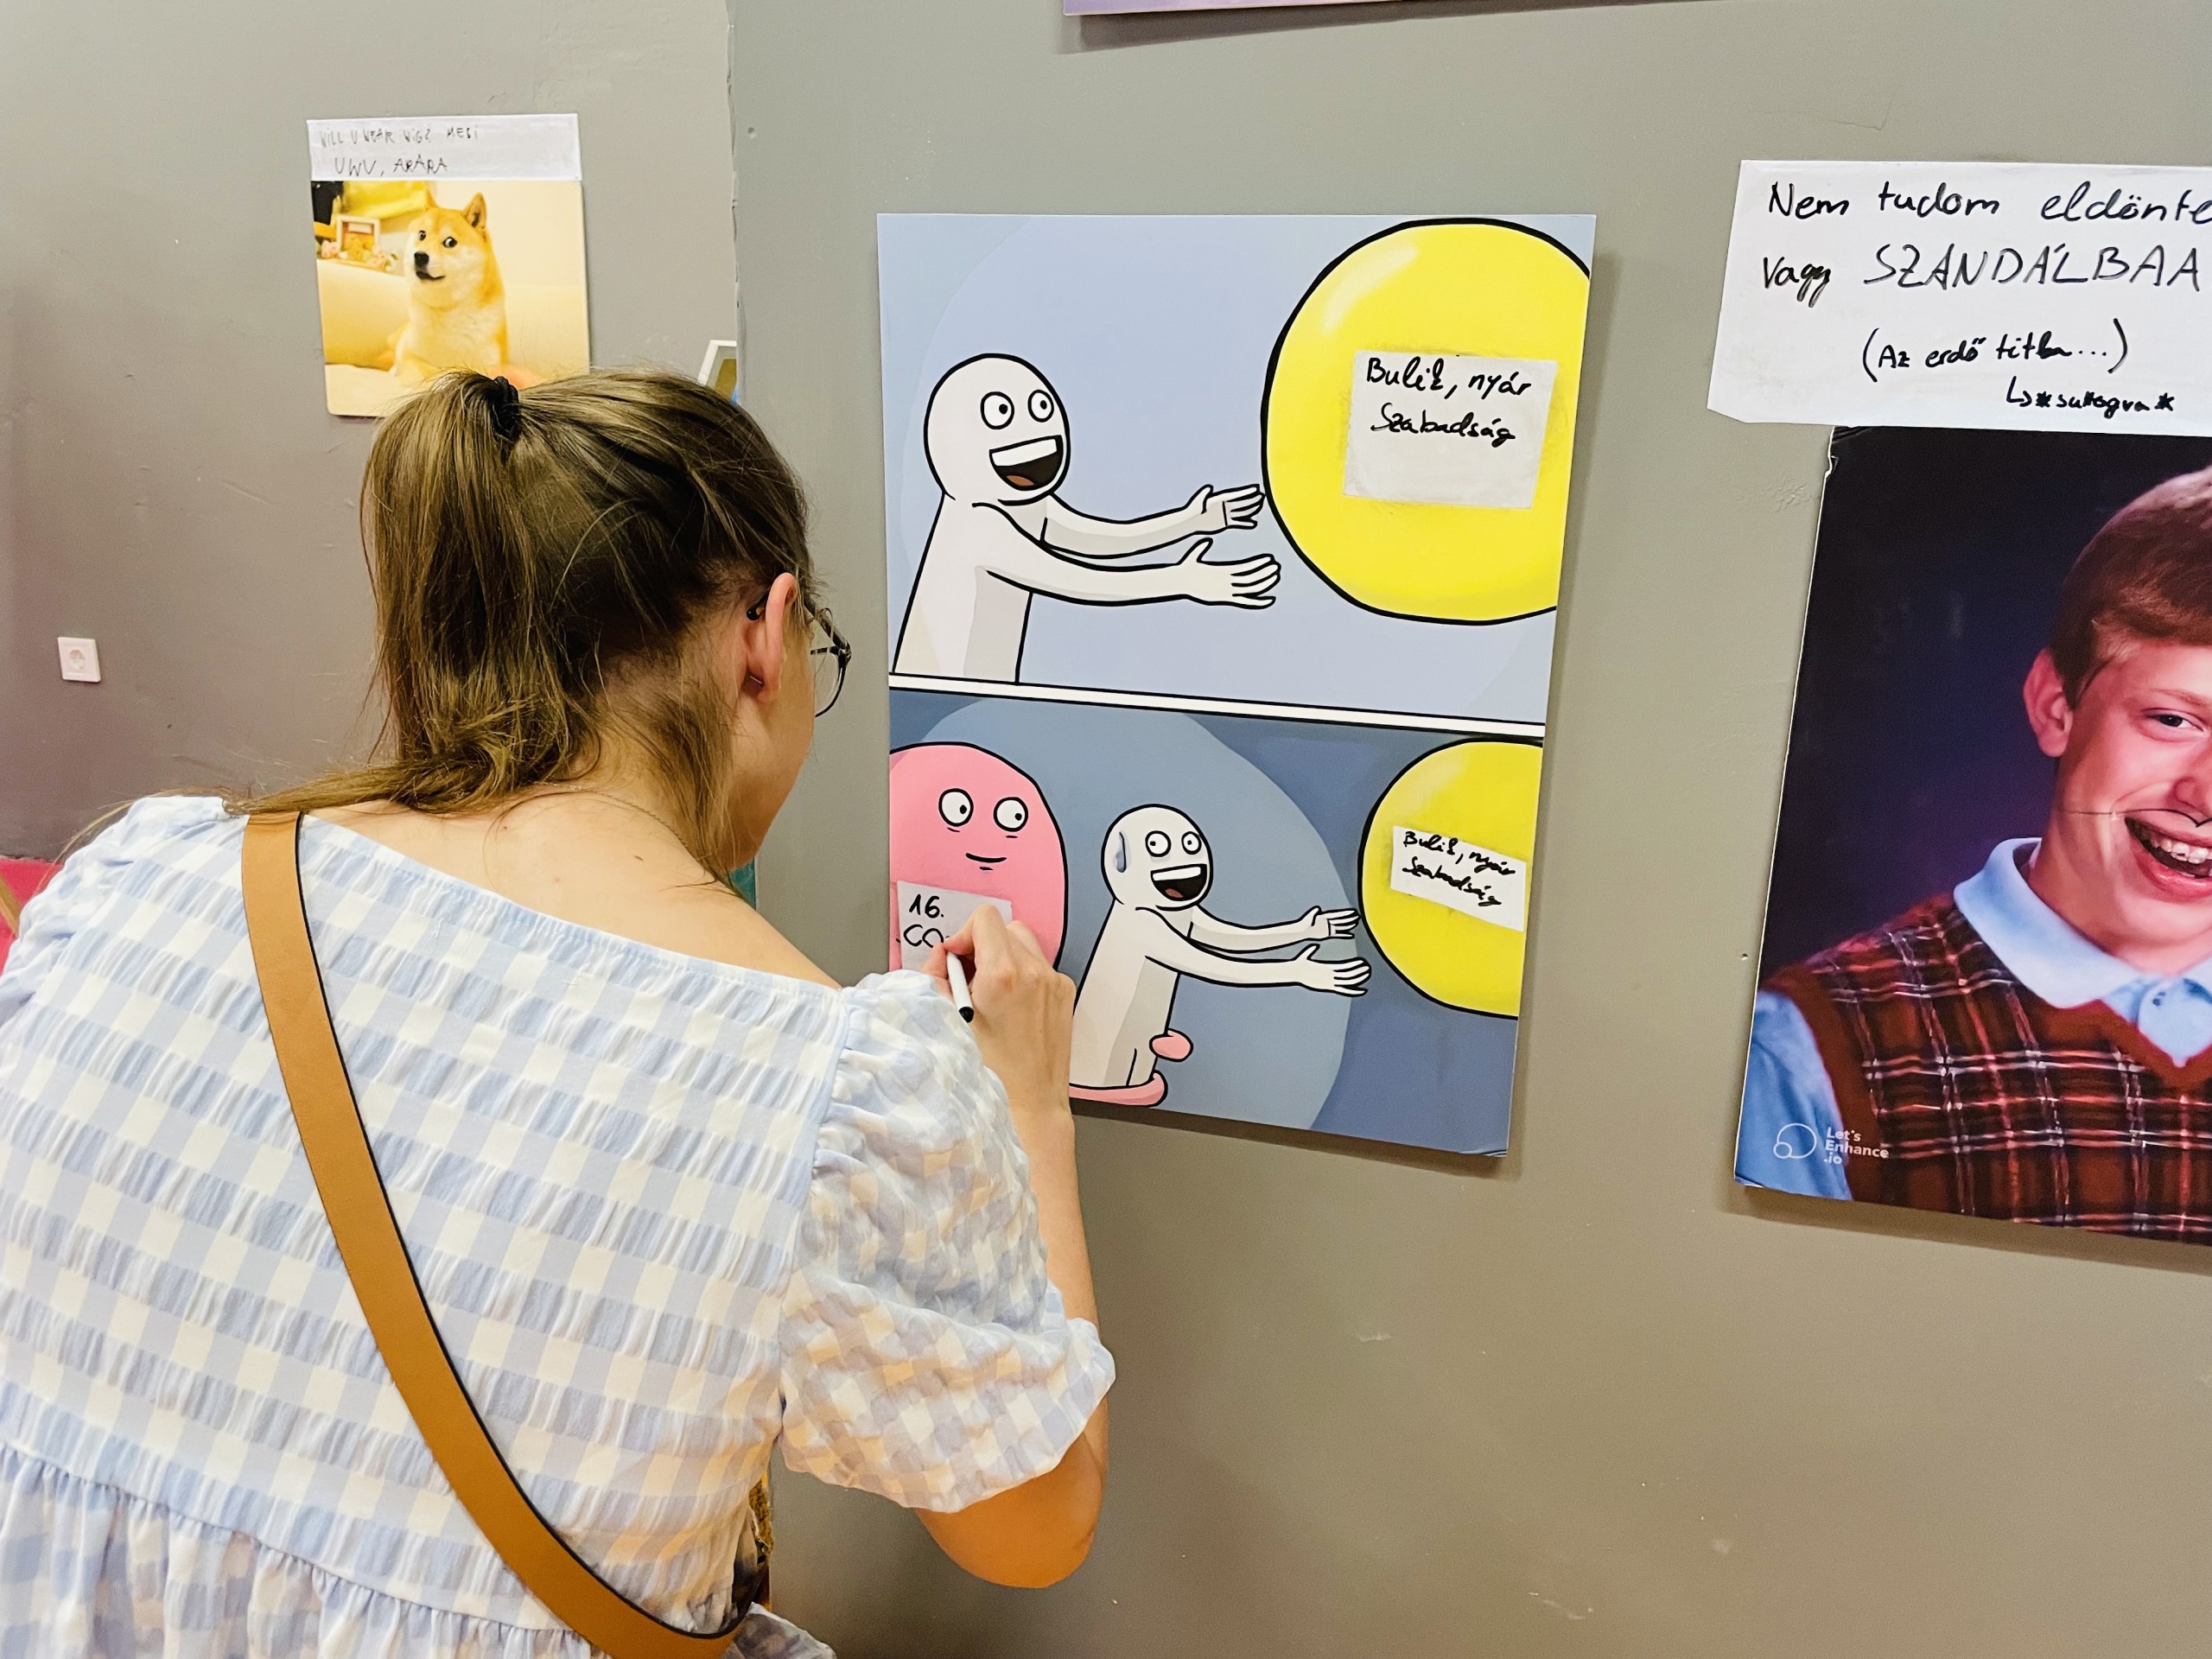 WILL U WEAR WIGS MEGI
UWU, ARARA
Bulik, nyár
Szabadság
Bulik, nyár
Szabadság
16.
CO
Nem tudom eldönte
Vagy SZANDÁLBAA
(Az erdő titka...)
↳*suttogva*
Let's
Enhance
.io